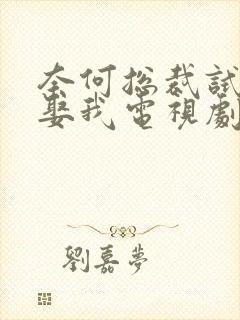 奈何总裁試
娶我電視劇
劉嘉夢